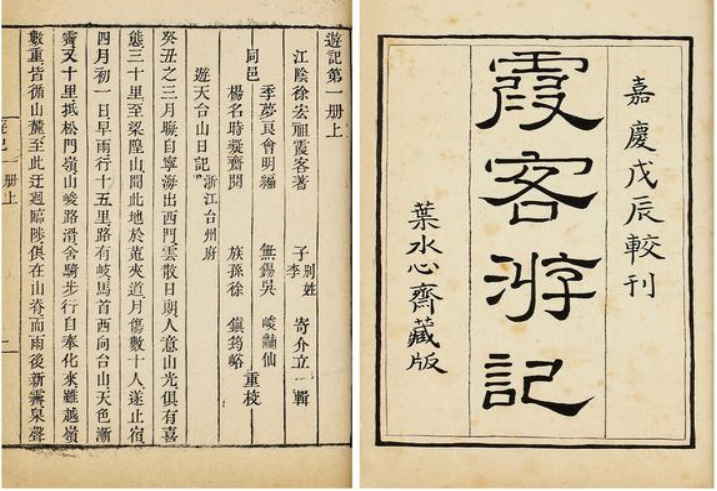 嘉慶戊辰較刊
霞客游記
葉水心齋藏版
遊記第一册上
江陰徐宏祖霞客著
子李别姓寄介立輯
季夢良會明編
無錫吳峻𪩘仙
同邑
重校
楊名時凝齋閱
族孫徐鎮筠峪
遊天台山日記浙江台州府
癸丑之三月晦自寧海出西門雲散日朗人意山光俱有喜
態三十里至梁隍山聞此地於菟夾道月傷數十人遂止宿
四月初一日早雨行十五里路有岐馬首西向台山天色漸
霽又十里抵松門嶺山峻路滑舍騎步行自奉化來雖越嶺
數重皆循山麓至此迂迴臨陟俱在山脊而雨後新霽泉聲
遊記一册上
一